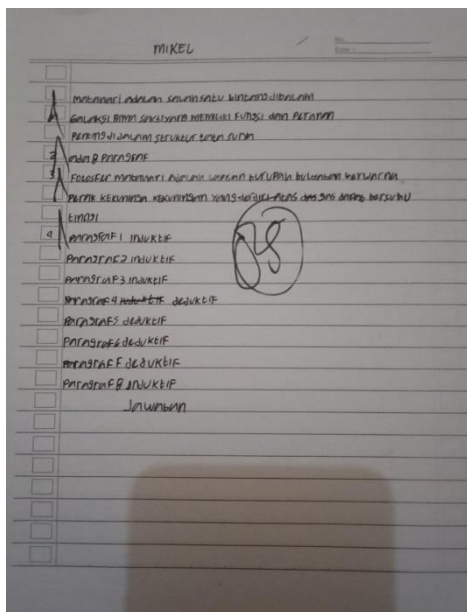 MIKEL
No:
Date:
1 Matahari adalah salah satu bintang didalam
Galaksi Bima sakti yang memiliki Fungsi dan Peranan
Penting didalam struktur tata surya
2 ada 8 Paragraf
3 Fotosfer matahari adalah berupah bulatan berwarna
Perak kekuningan yang terdiri atas gas bersuhu
tinggi
4 Paragraf 1 induktif
Paragraf 2 induktif
Paragraf 3 induktif
Paragraf 4 induktif deduktif
Paragraf 5 deduktif
Paragraf 6 deduktif
Paragraf F deduktif
Paragraf 8 induktif
Jawaban